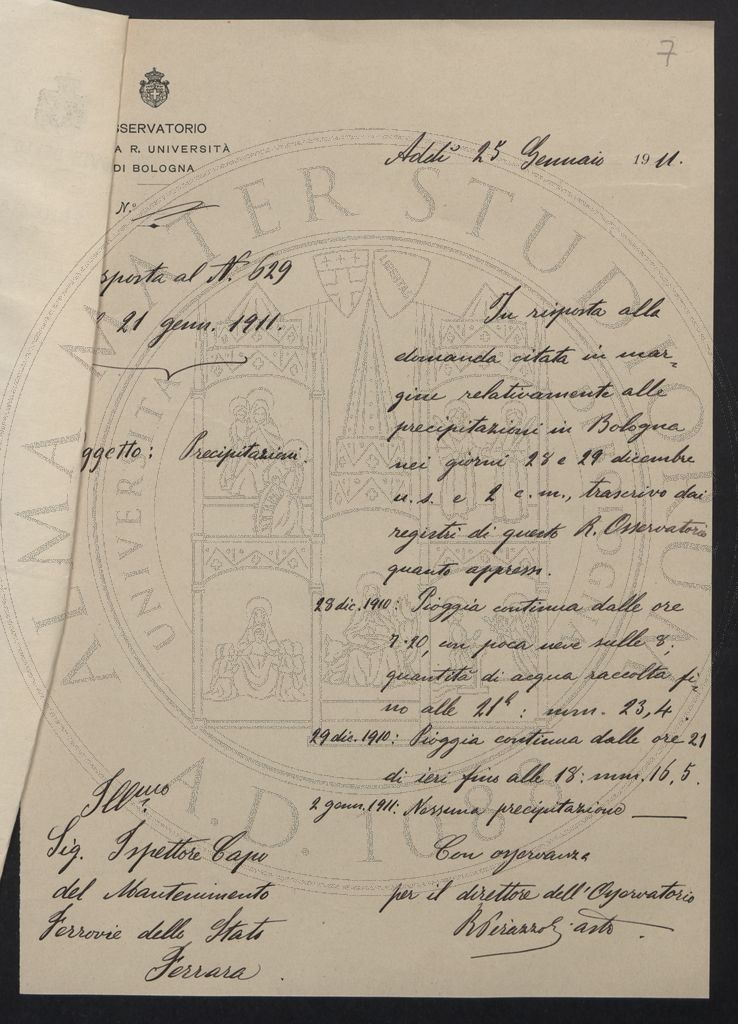 7
SSERVATORIO
A R. UNIVERSITÀ
DI BOLOGNA
N.º
Addì 25 Gennaio 1911.
sposta al N. 629
21 genn. 1911.
ggetto: Precipitazioni.
In risposta alla
domanda citata in mar=
gine relativamente alle
precipitazioni in Bologna
nei giorni 28 e 29 dicembre
u. s. e 2 c. m., trascrivo dai
registri di questo R. Osservatorio
quanto appresso.
28 dic. 1910: Pioggia continua dalle ore
7.20, un poca neve sulle 8;
quantità di acqua raccolta fi=
no alle 21h: mm. 23,4.
29 dic. 1910: Pioggia continua dalle ore 21
di ieri fino alle 18: mm. 16,5.
2 genn. 1911: Nessuna precipitazione
Con osservanza
per il direttore dell'Osservatorio
R Pirazzoli astr.
Illmo
Sig. Ispettore Capo
del Mantenimento
Ferrovie dello Stato
Ferrara.
ALMA MATER STUDIORUM
A.D. 1088
UNIVERSITÀ